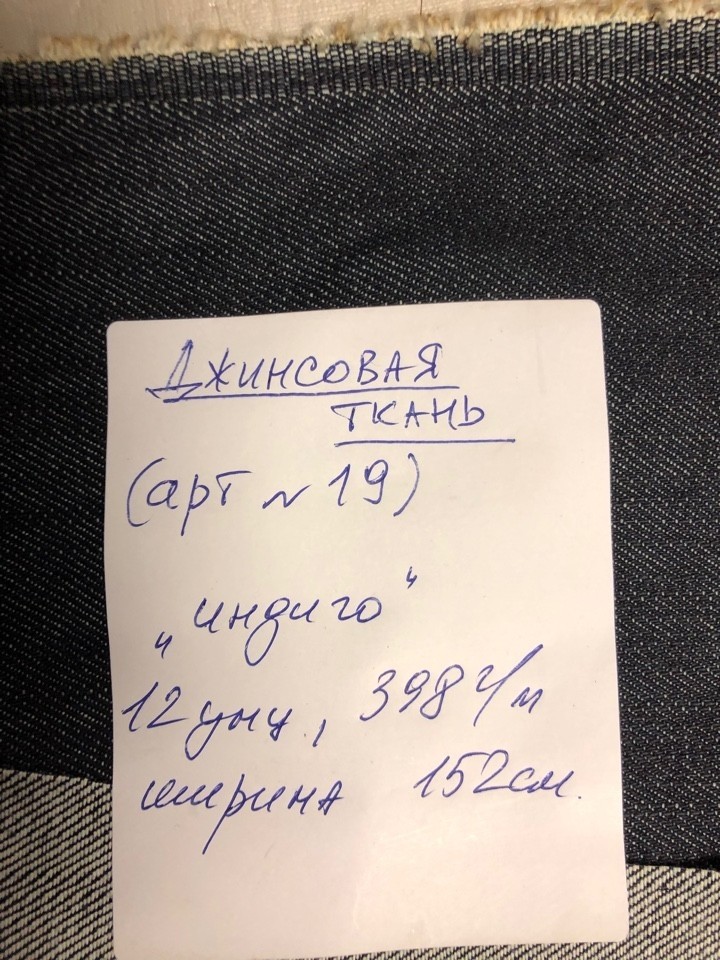 ДЖИНСОВАЯ
ТКАНЬ
(арт № 19)
„индиго“
12 унц., 398 г/м
ширина 152см.